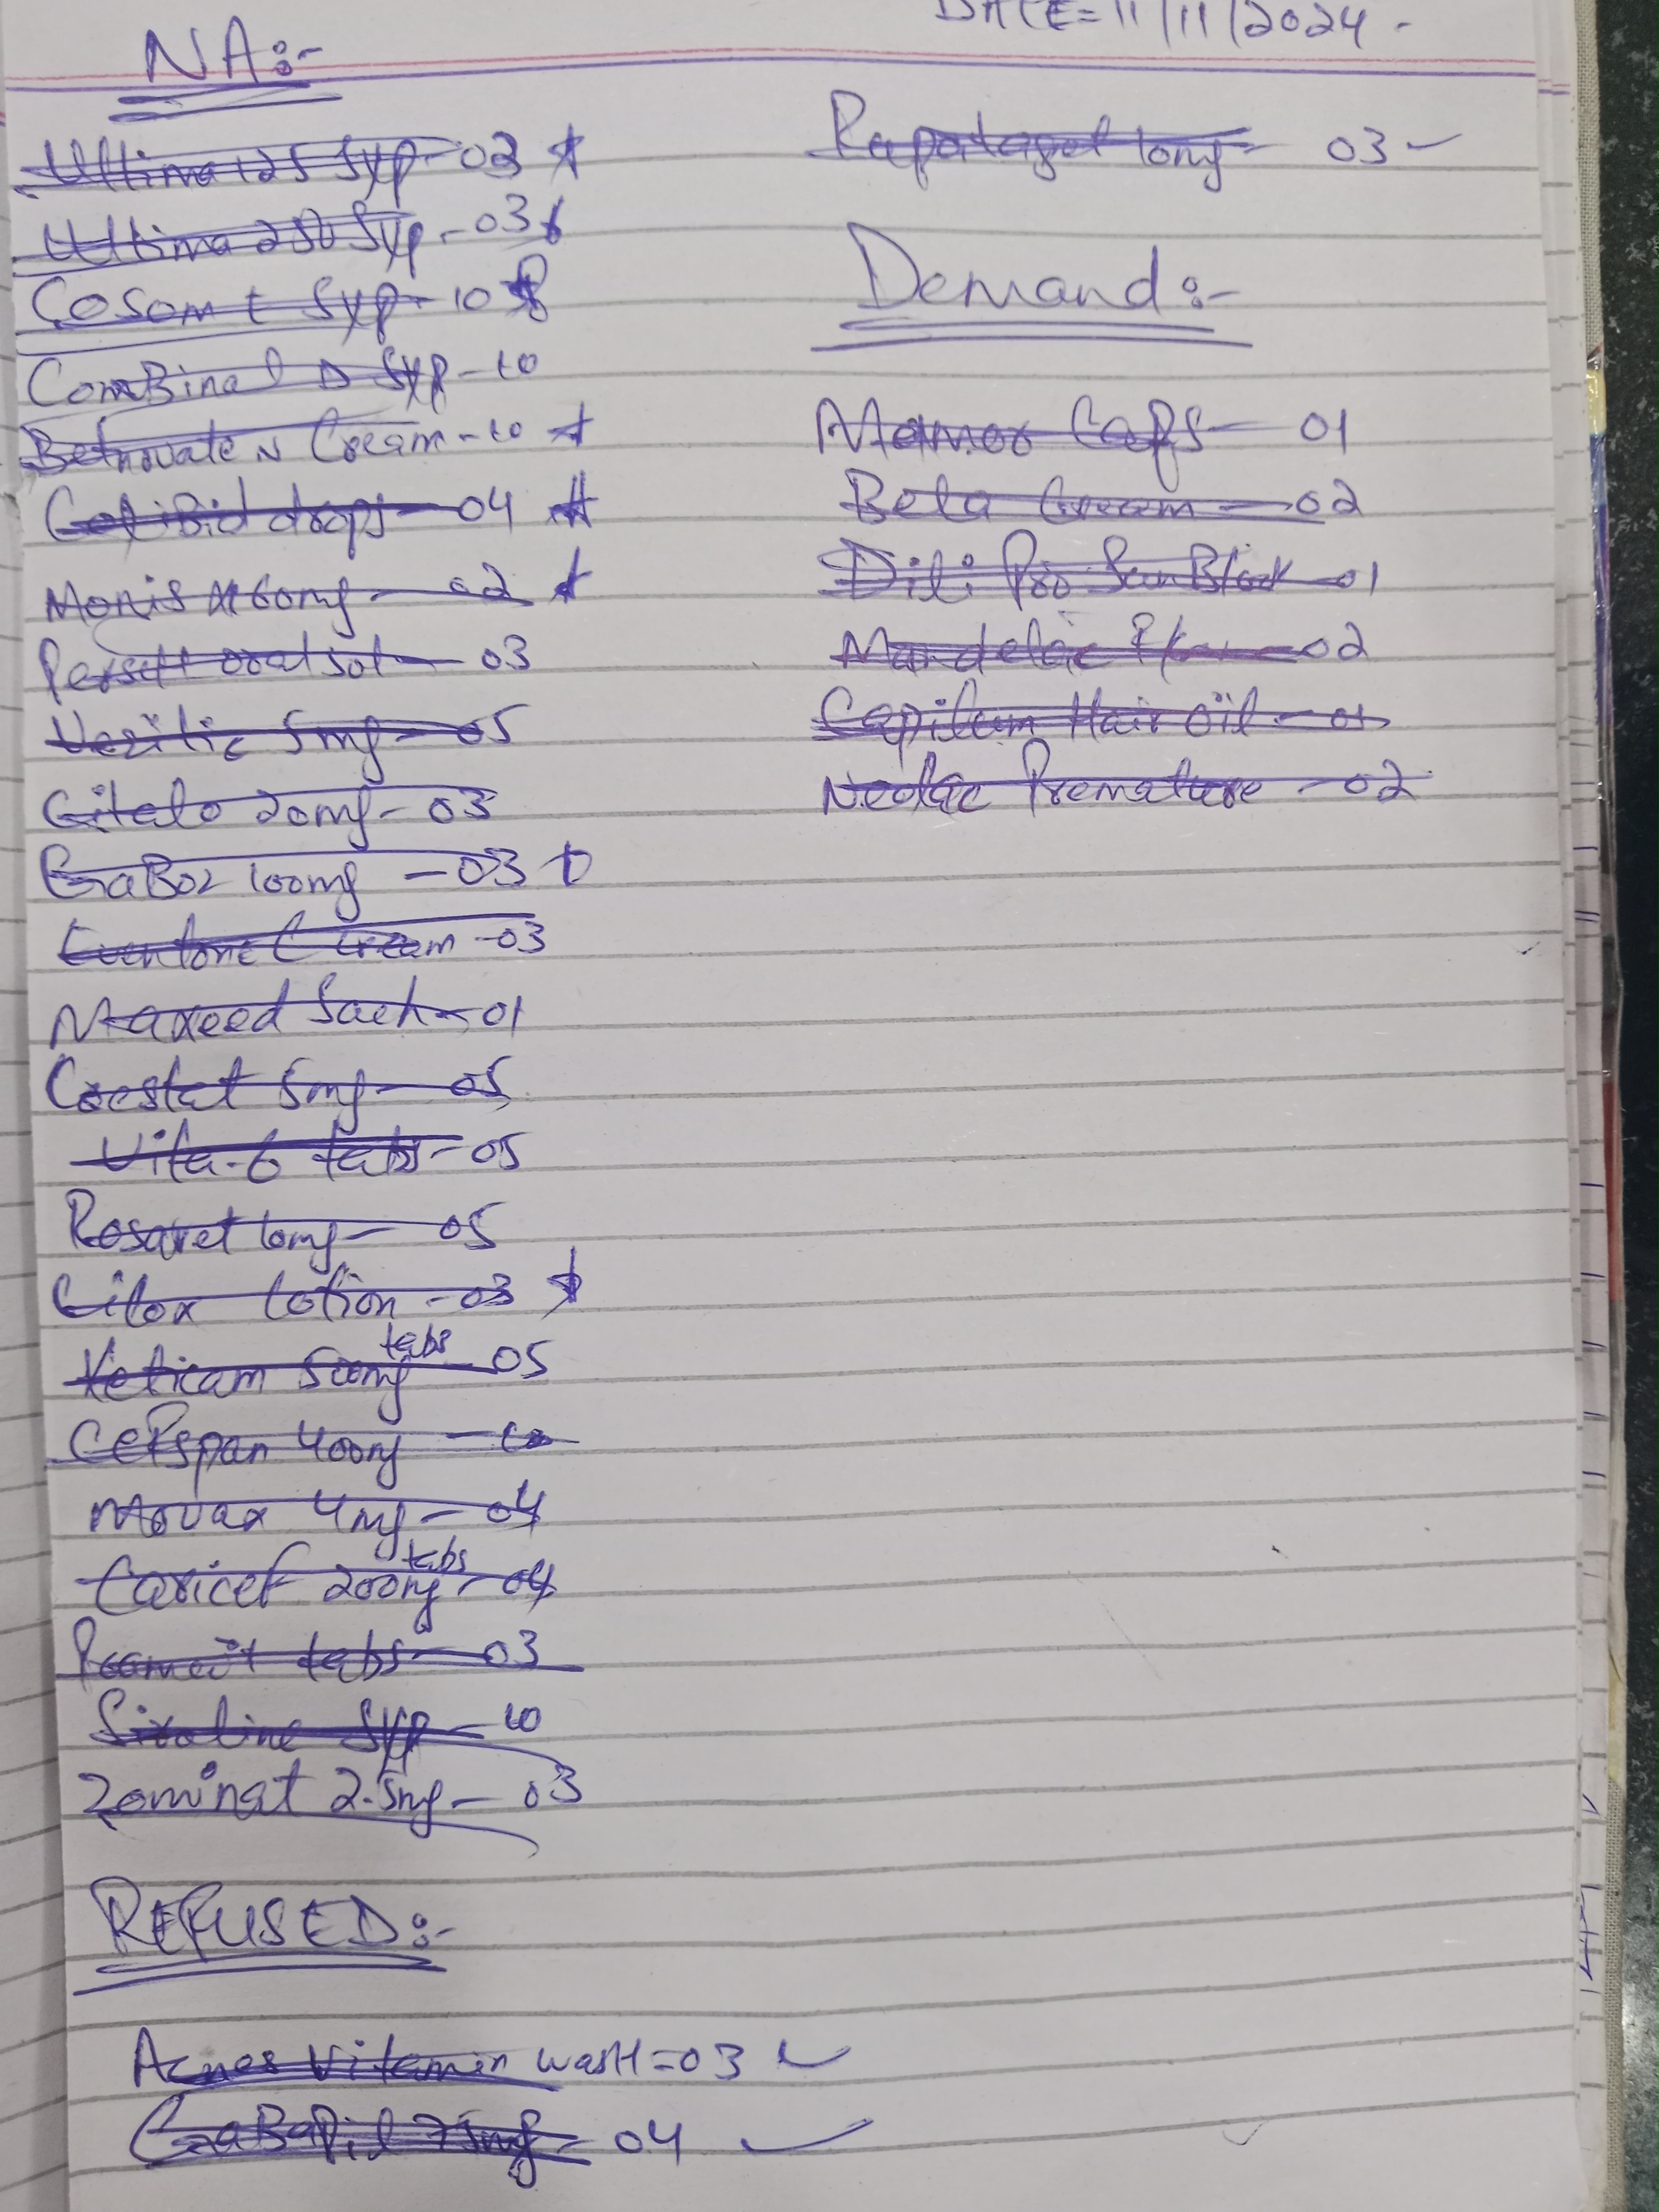 DATE=11/11/2024
NA:-
Ultima 125 Syp - 03
Ultima 250 Syp - 03
Cosom E Syp - 10
ComBinal D Syp - 10
Betnovate N Cream - 10
CefiBid drops - 04
Monis 60mg - 02
oral sol - 03
5mg - 05
Citalo 20mg - 03
GaBoz 100mg - 03
Eventone C Cream - 03
Maxeed Sach - 01
Crestat 5mg - 05
Vita-6 tabs - 05
Rosavet 10mg - 05
Citox Lotion - 03
Xeticam 500mg tabs - 05
CEFspan 400mg - 10
Movax 4mg - 04
Caricef 200mg tabs - 04
tabs - 03
Siroline Syp - 10
Zominat 2.5mg - 03
REFUSED:-
Acnes Vitamin wasH = 03
GaBaPil 75mg - 04
10mg - 03
Demand:-
Caps - 01
Beta Cream - 02
Pro SunBlock - 01
Mandelac - 02
Hair oil - 01
Neolac Premature - 02